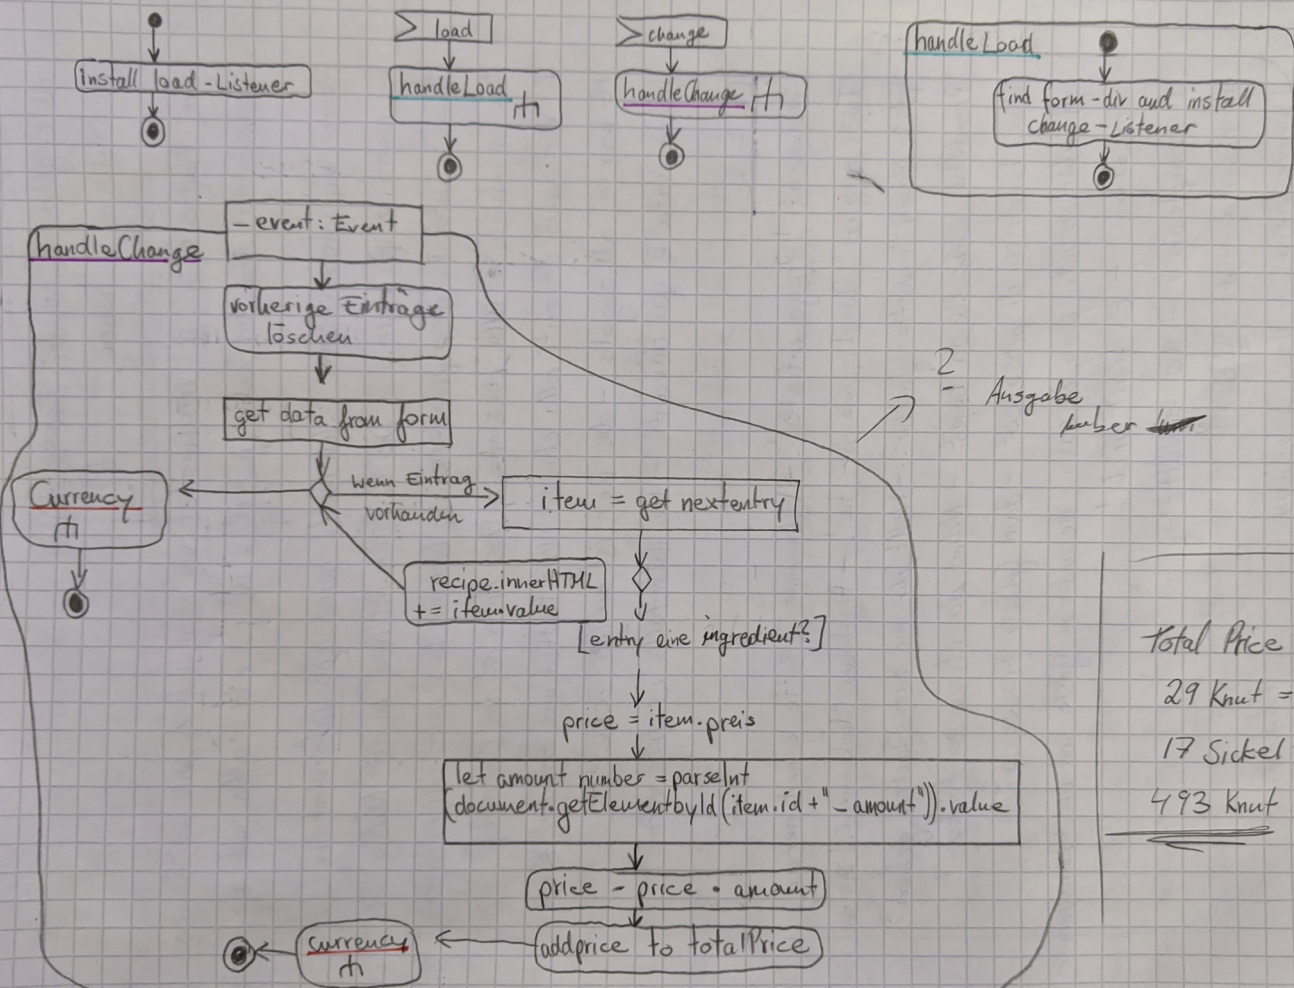 install load-Listener
load
handleLoad
change
handleChange
handleLoad
find form-div and install
change-Listener
handleChange
- event: Event
vorherige Einträge
löschen
get data from form
Currency
wenn Eintrag
vorhanden
item = get nextentry
recipe.innerHTML
+= item.value
[entry eine ingredient?]
price = item.preis
let amount number = parseInt
(document.getElementbyId(item.id+"_amount")).value
price - price • amount
addprice to totalPrice
currency
Ausgabe
Total Price
29 Knut =
17 Sickel
493 Knut